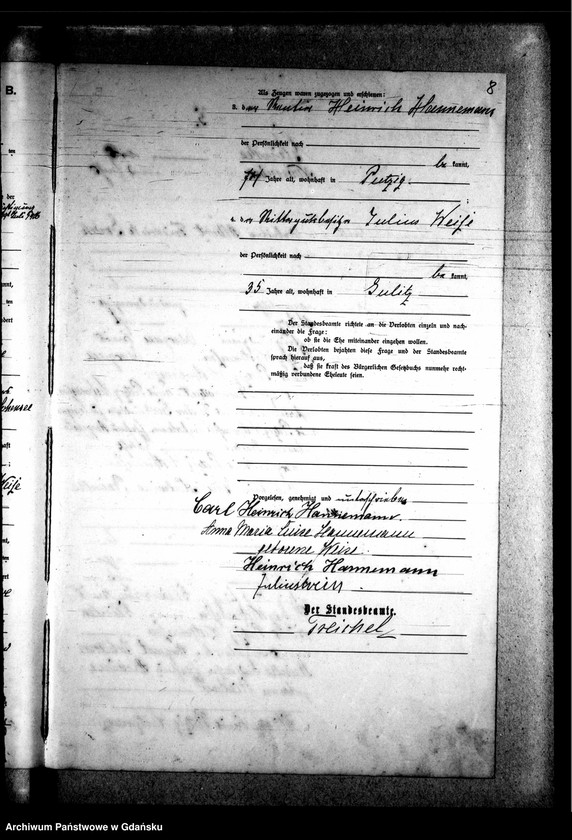 8
B.
Als Zeugen waren zugezogen und erschienen:
3. der Rentier Heinrich Hannemann
der Persönlichkeit nach
be kannt,
Jahre alt, wohnhaft in Putzig
;
4. der Rittergutsbesitzer Julius Weiße
der Persönlichkeit nach
be kannt,
35 Jahre alt, wohnhaft in Gulitz
Der Standesbeamte richtete an die Verlobten einzeln und nach-
einander die Frage:
ob sie die Ehe miteinander eingehen wollen.
Die Verlobten bejahten diese Frage und der Standesbeamte
sprach hierauf aus,
daß sie kraft des Bürgerlichen Gesetzbuchs nunmehr recht-
mäßig verbundene Eheleute seien.
Vorgelesen, genehmigt und unterschrieben
Carl Heinrich Hannemann.
Anna Maria Luise Hannemann
geborene Weise.
Heinrich Hannemann
Julius
Der Standesbeamte.
Treichel
Archiwum Państwowe w Gdańsku